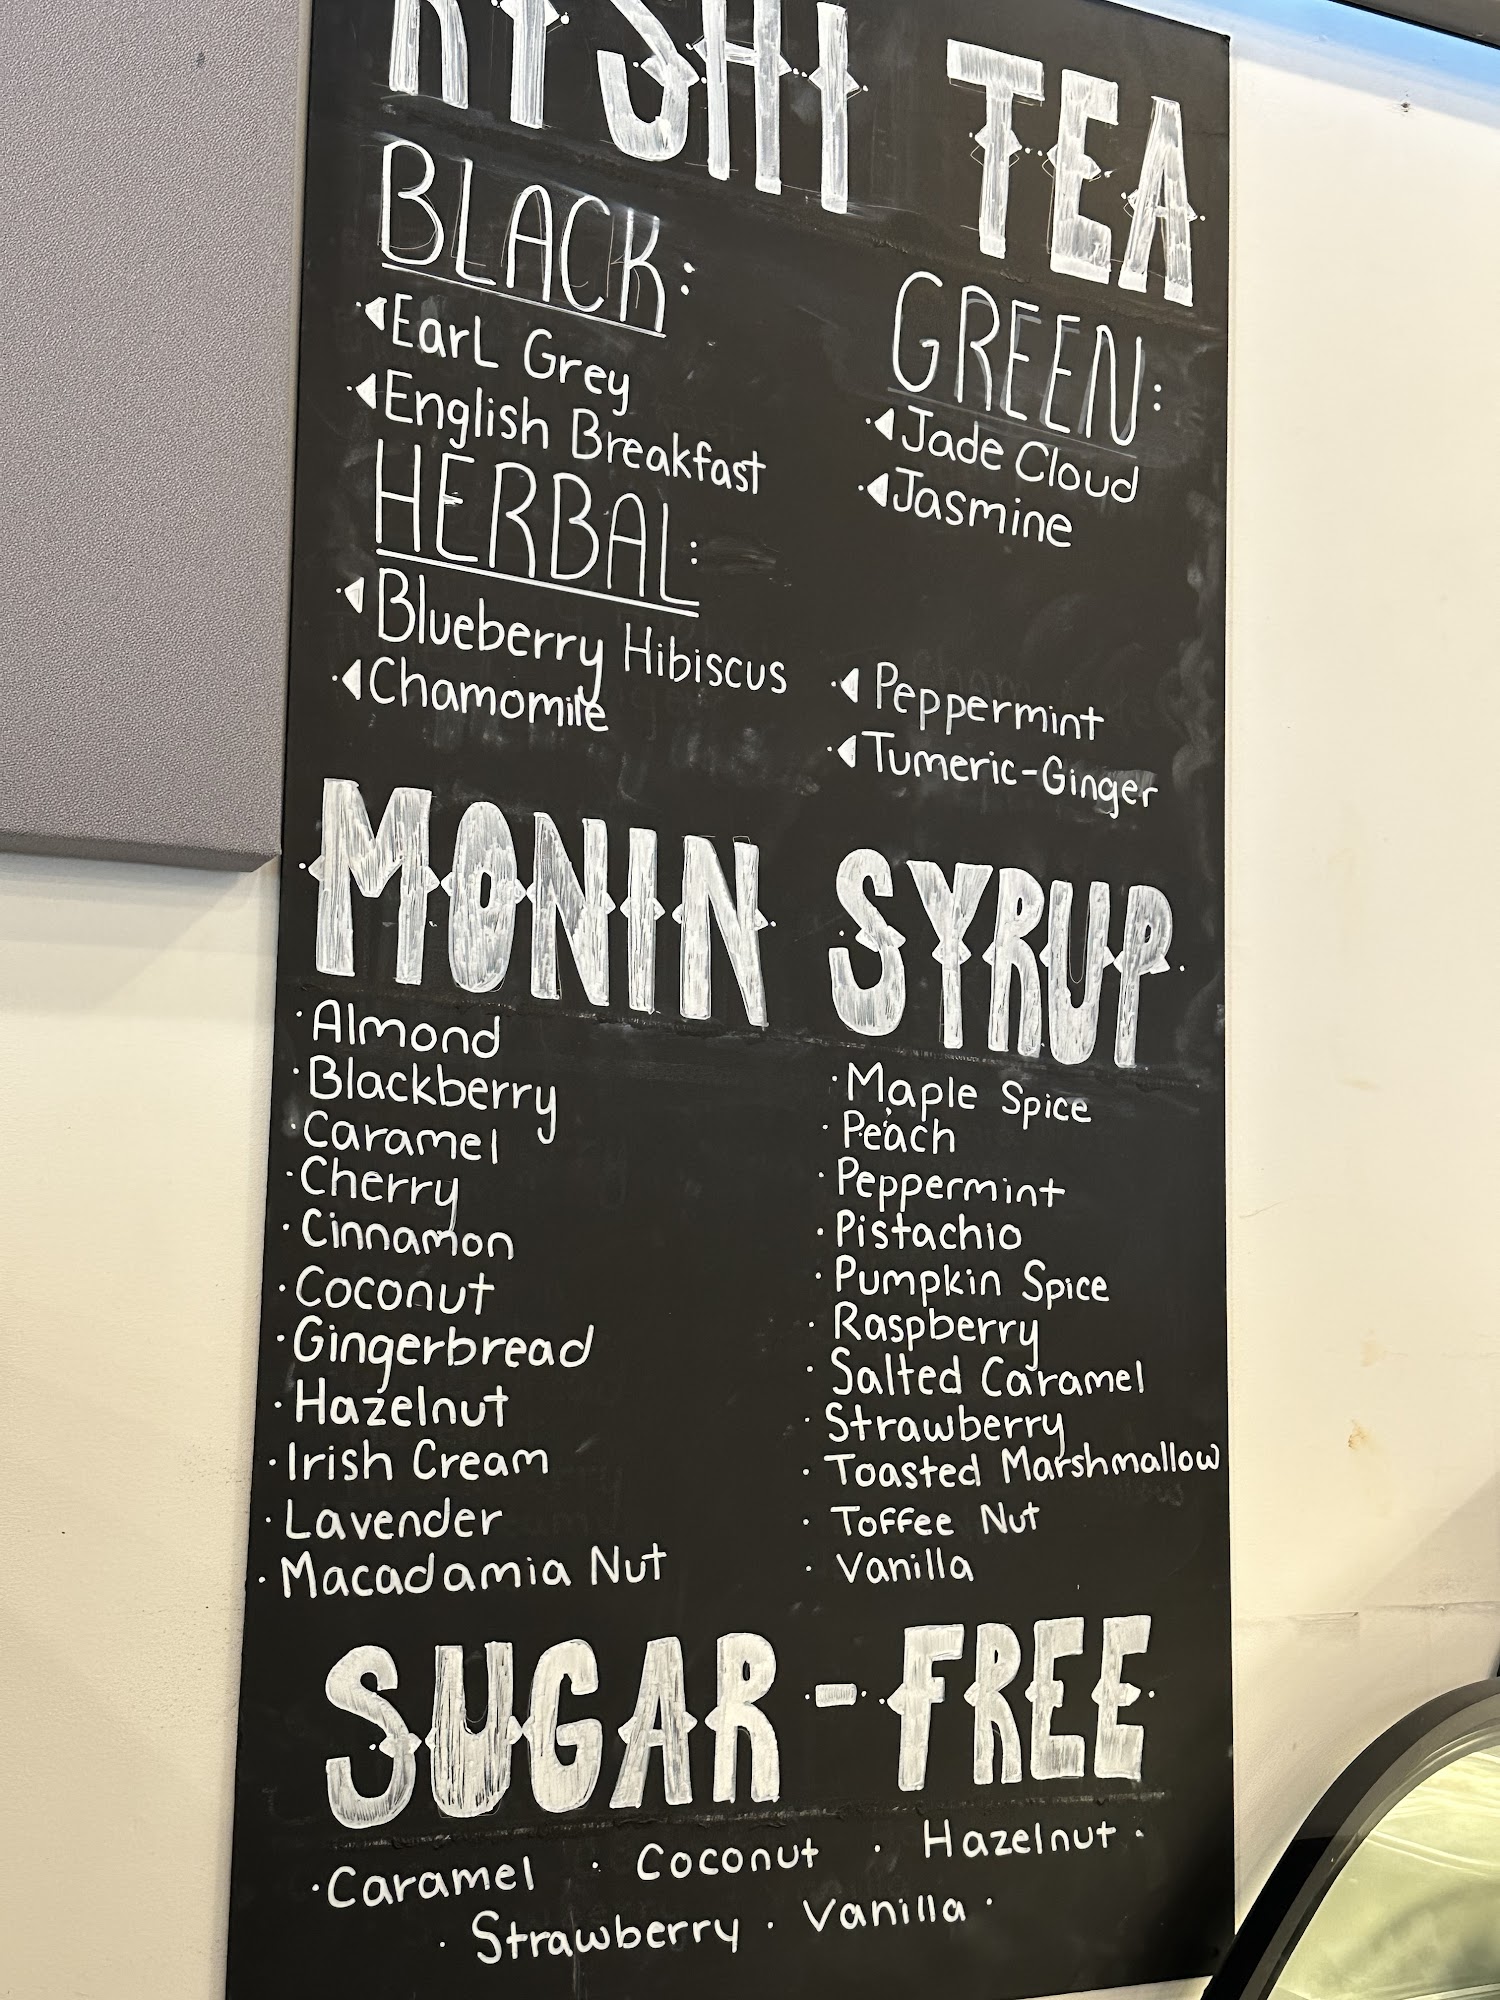 RISHI TEA
BLACK:
Earl Grey
English Breakfast
GREEN:
Jade Cloud
Jasmine
HERBAL:
Blueberry Hibiscus
Chamomile
Peppermint
Tumeric-Ginger
MONIN SYRUP
· Almond
· Blackberry
· Caramel
· Cherry
· Cinnamon
· Coconut
· Gingerbread
· Hazelnut
· Irish Cream
· Lavender
· Macadamia Nut
· Maple Spice
· Peach
· Peppermint
· Pistachio
· Pumpkin Spice
· Raspberry
· Salted Caramel
· Strawberry
· Toasted Marshmallow
· Toffee Nut
· Vanilla
SUGAR-FREE
· Caramel · Coconut · Hazelnut ·
· Strawberry · Vanilla ·